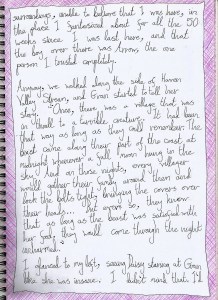 surroundings, unable to believe that I was here, in
this place I fantasised about for all the 50
weeks since I was last here, and that
the boy over there was Arrons the one
person I trusted completely.
Anyway, we walked along the side of
Valley Stream, and Gran started to tell her
story. "Once, there was a village that was
in thrall to a terrible creature. It had been
that way as long as they call remember. The
beast came along their part of the coast at
midnight whenever a full moon hung in the
sky. And on those nights, every villager
would gather their family around them and
lock the bolts tight, bringing the covers over
their heads... And even so, they knew
that as long as the beast was satisfied with
her, they would come through the night
unharmed."
I glanced to my left, seeing Daisy staring at Gran
like she was insane. I didn't mind that. I'd